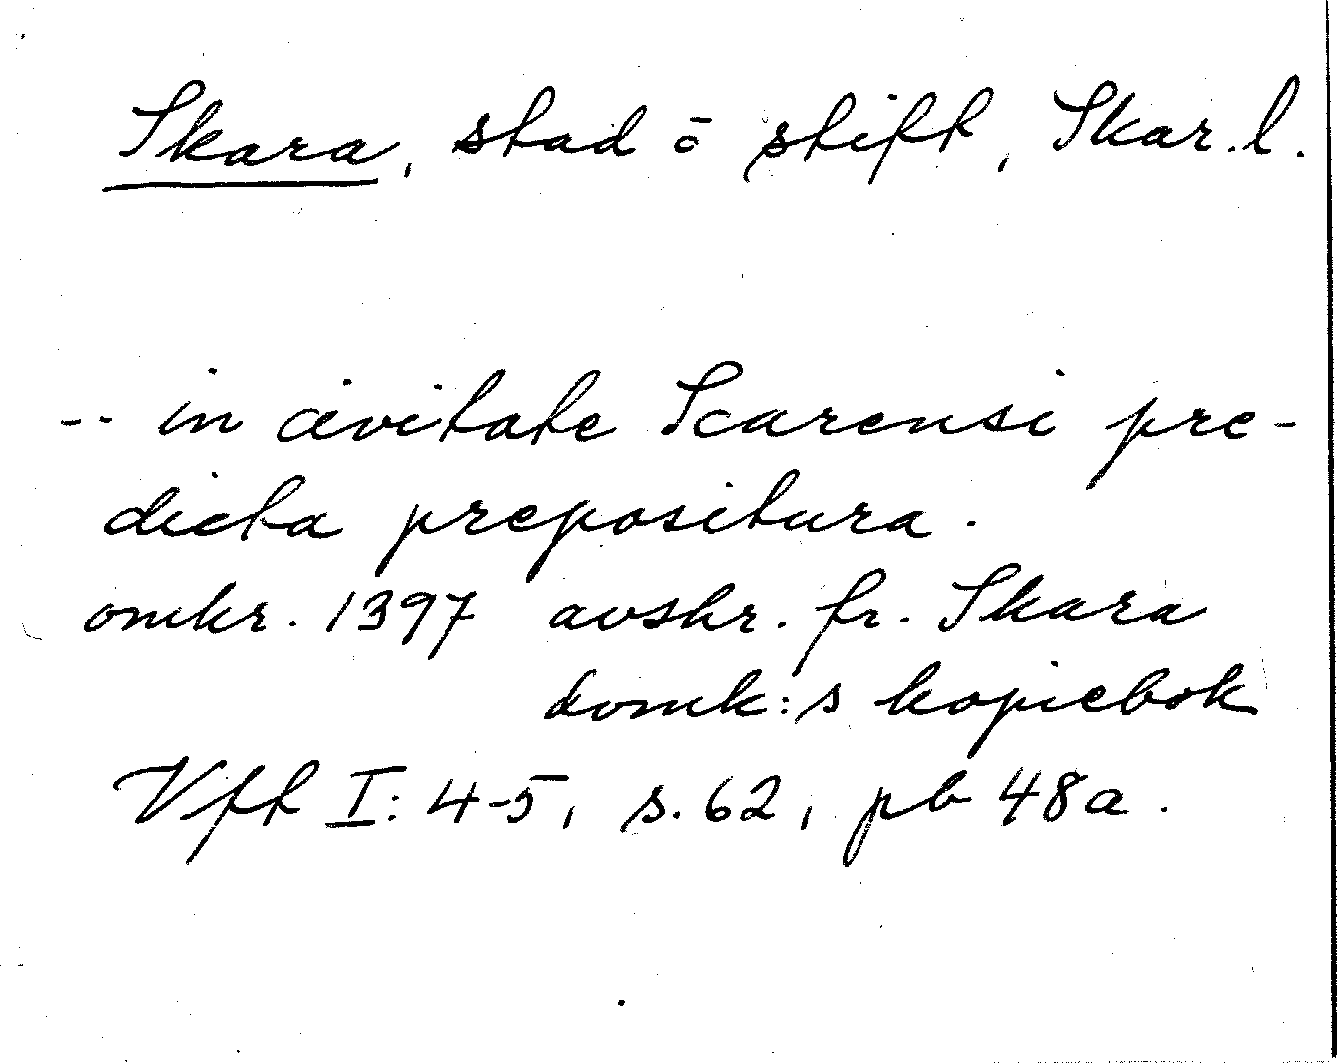 Skara, stad o stift, Skar.l.
-- in civitate Scarensi pre-
dicta prepositura.
omkr. 1397 avskr. fr. Skara
domk:s kopiebok
Vft I: 4-5, s. 62, pb 48a.